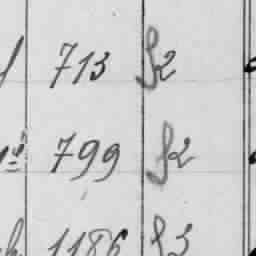 713 S2
799 S2
1186 S3